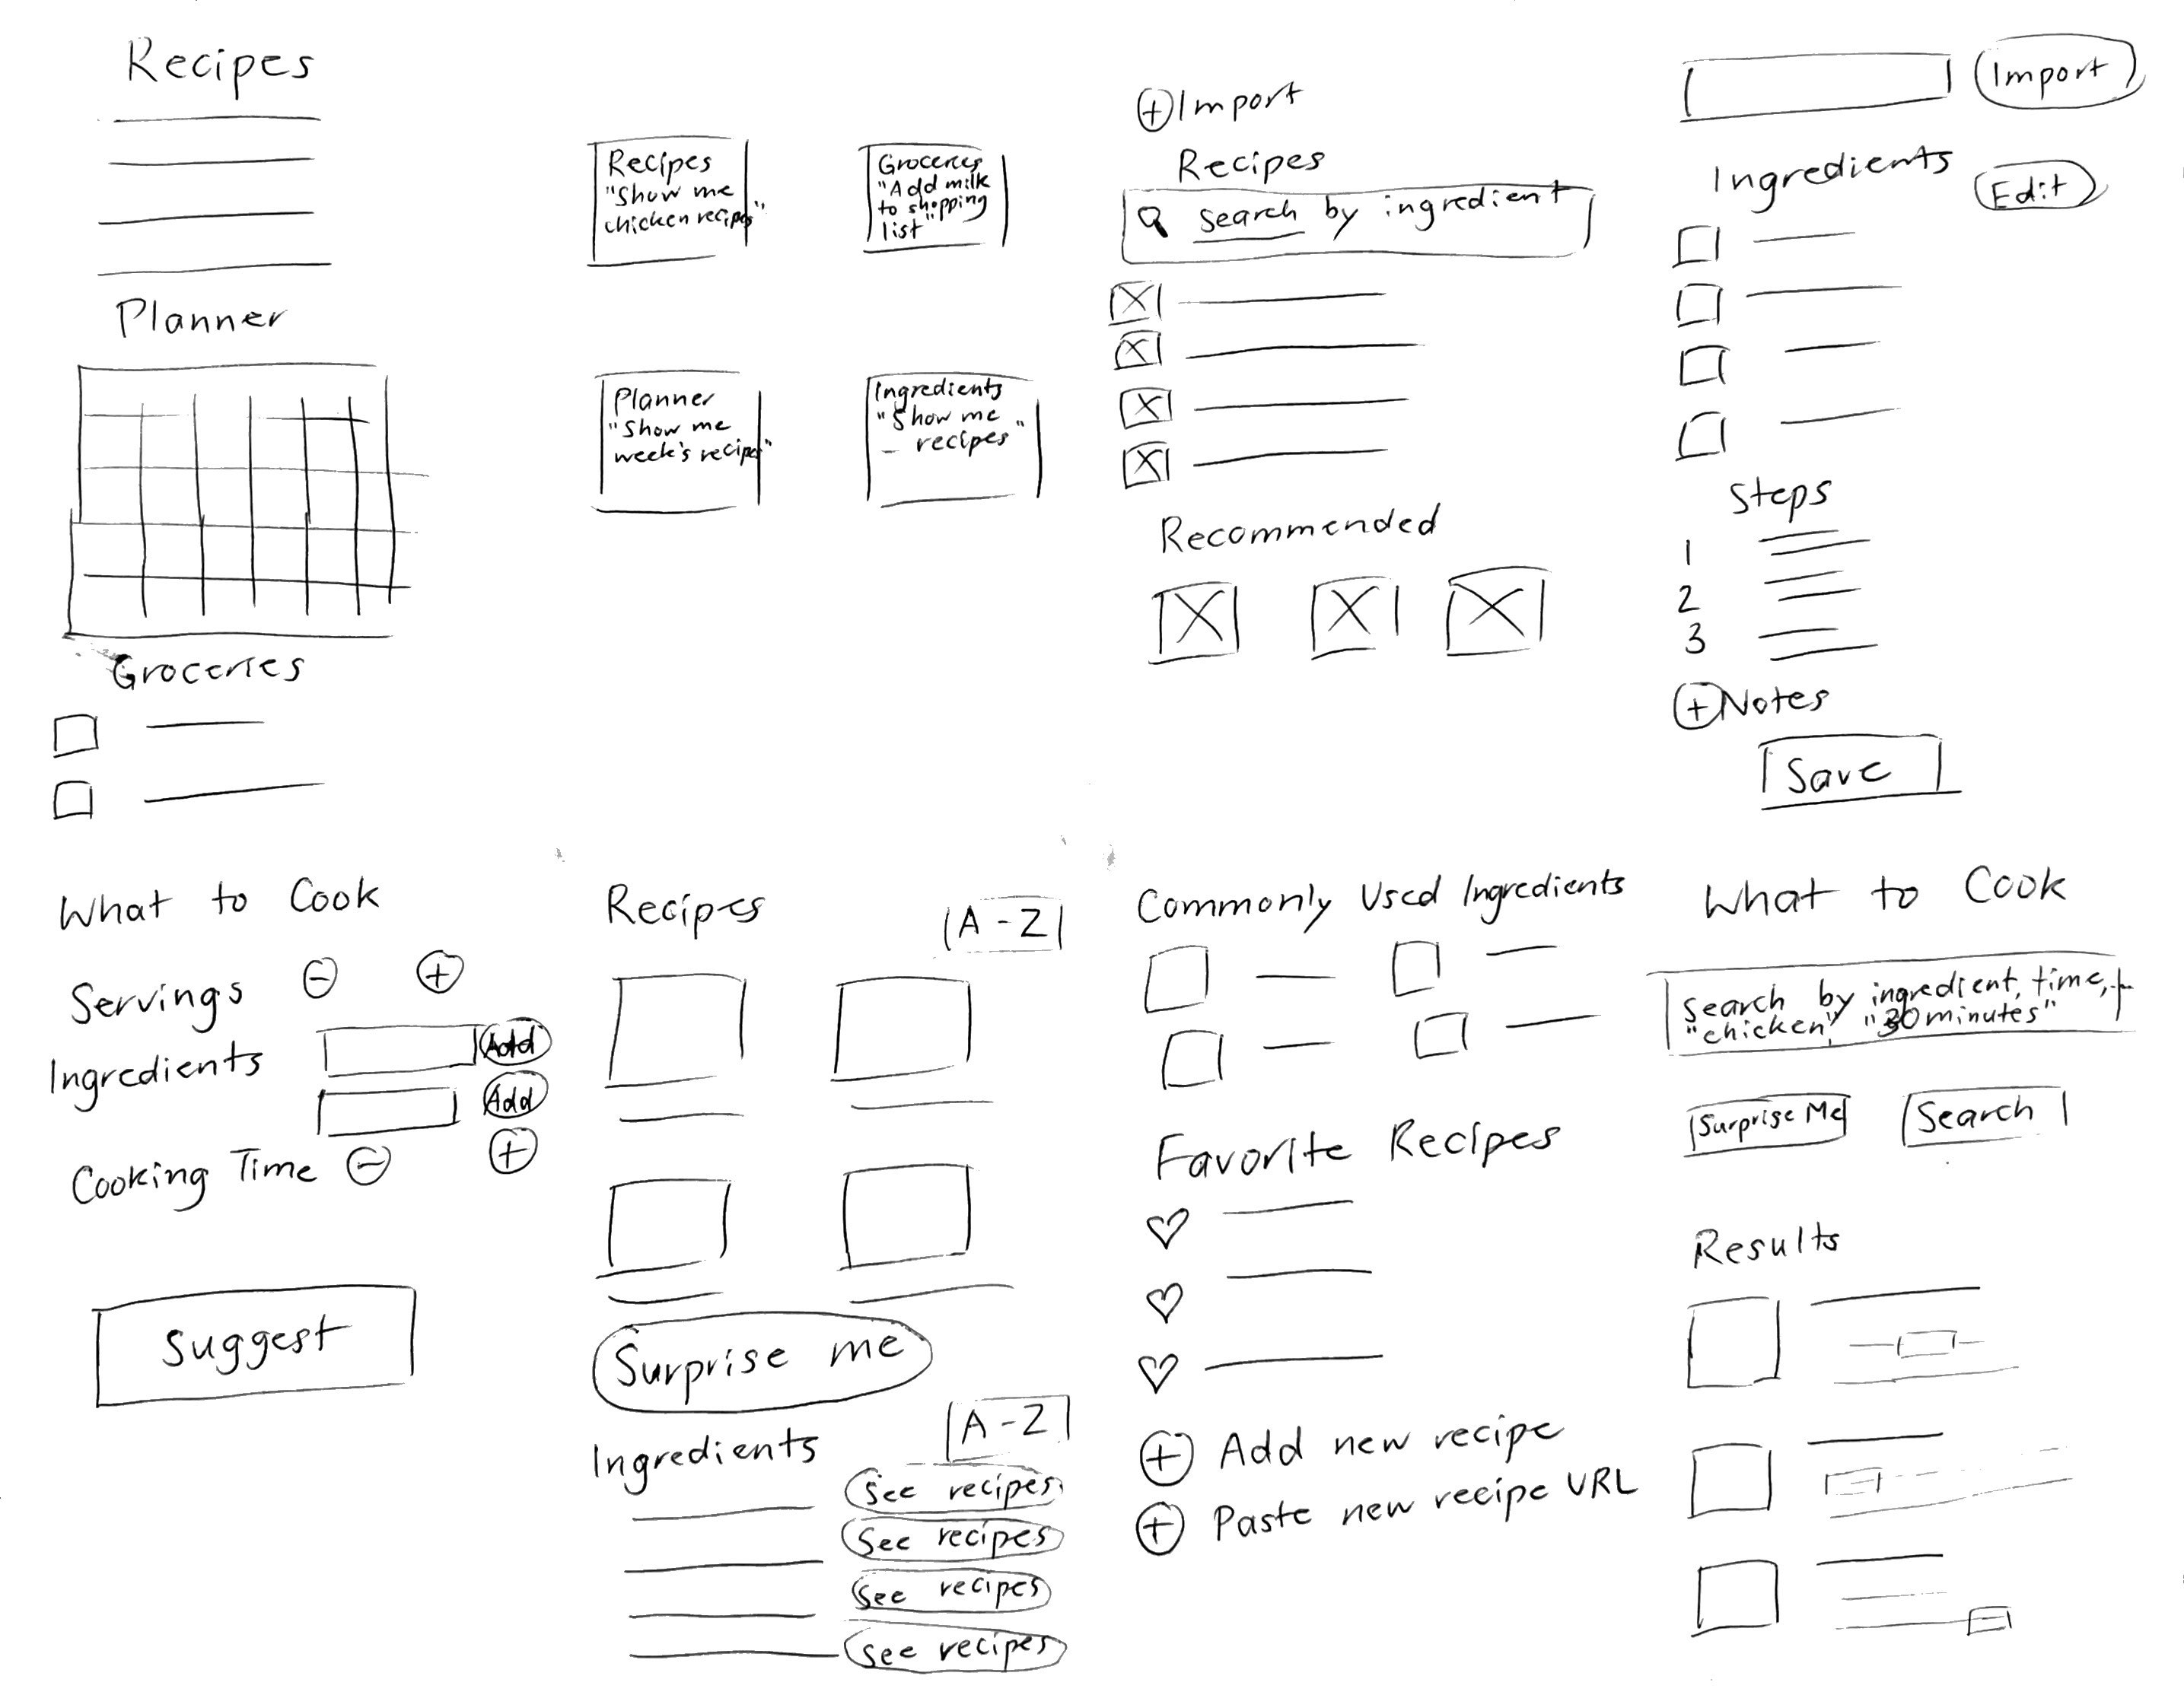 Recipes
Planner
Groceries
Recipes
"Show me
chicken recipes"
Groceries
"Add milk
to shopping
list"
Planner
"Show me
week's recipes"
Ingredients
"Show me
_ recipes"
+ Import
Recipes
search by ingredient
Recommended
Import
Ingredients
Edit
Steps
1
2
3
+ Notes
Save
What to Cook
Servings - +
Ingredients Add
Add
Cooking Time - +
Suggest
Recipes
A-Z
Surprise me
A-Z
Ingredients
See recipes
See recipes
See recipes
See recipes
Commonly Used Ingredients
Favorite Recipes
+ Add new recipe
+ Paste new recipe URL
What to Cook
Search by ingredient, time, +
"chicken", "30 minutes"
Surprise Me
Search
Results